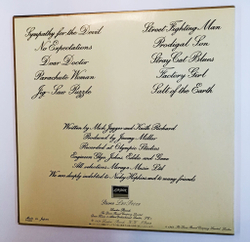 Sympathy for the Devil
No Expectations
Dear Doctor
Parachute Woman
Jig-Saw Puzzle
Street Fighting Man
Prodigal Son
Stray Cat Blues
Factory Girl
Salt of the Earth
Written by Mick Jagger and Keith Richard
Produced by Jimmy Miller
Recorded at Olympic Studios
Engineers Glyn Johns, Eddie and Gene
All selections Mirage Music Ltd
We are deeply indebted to Nicky Hopkins and to many friends
LONDON